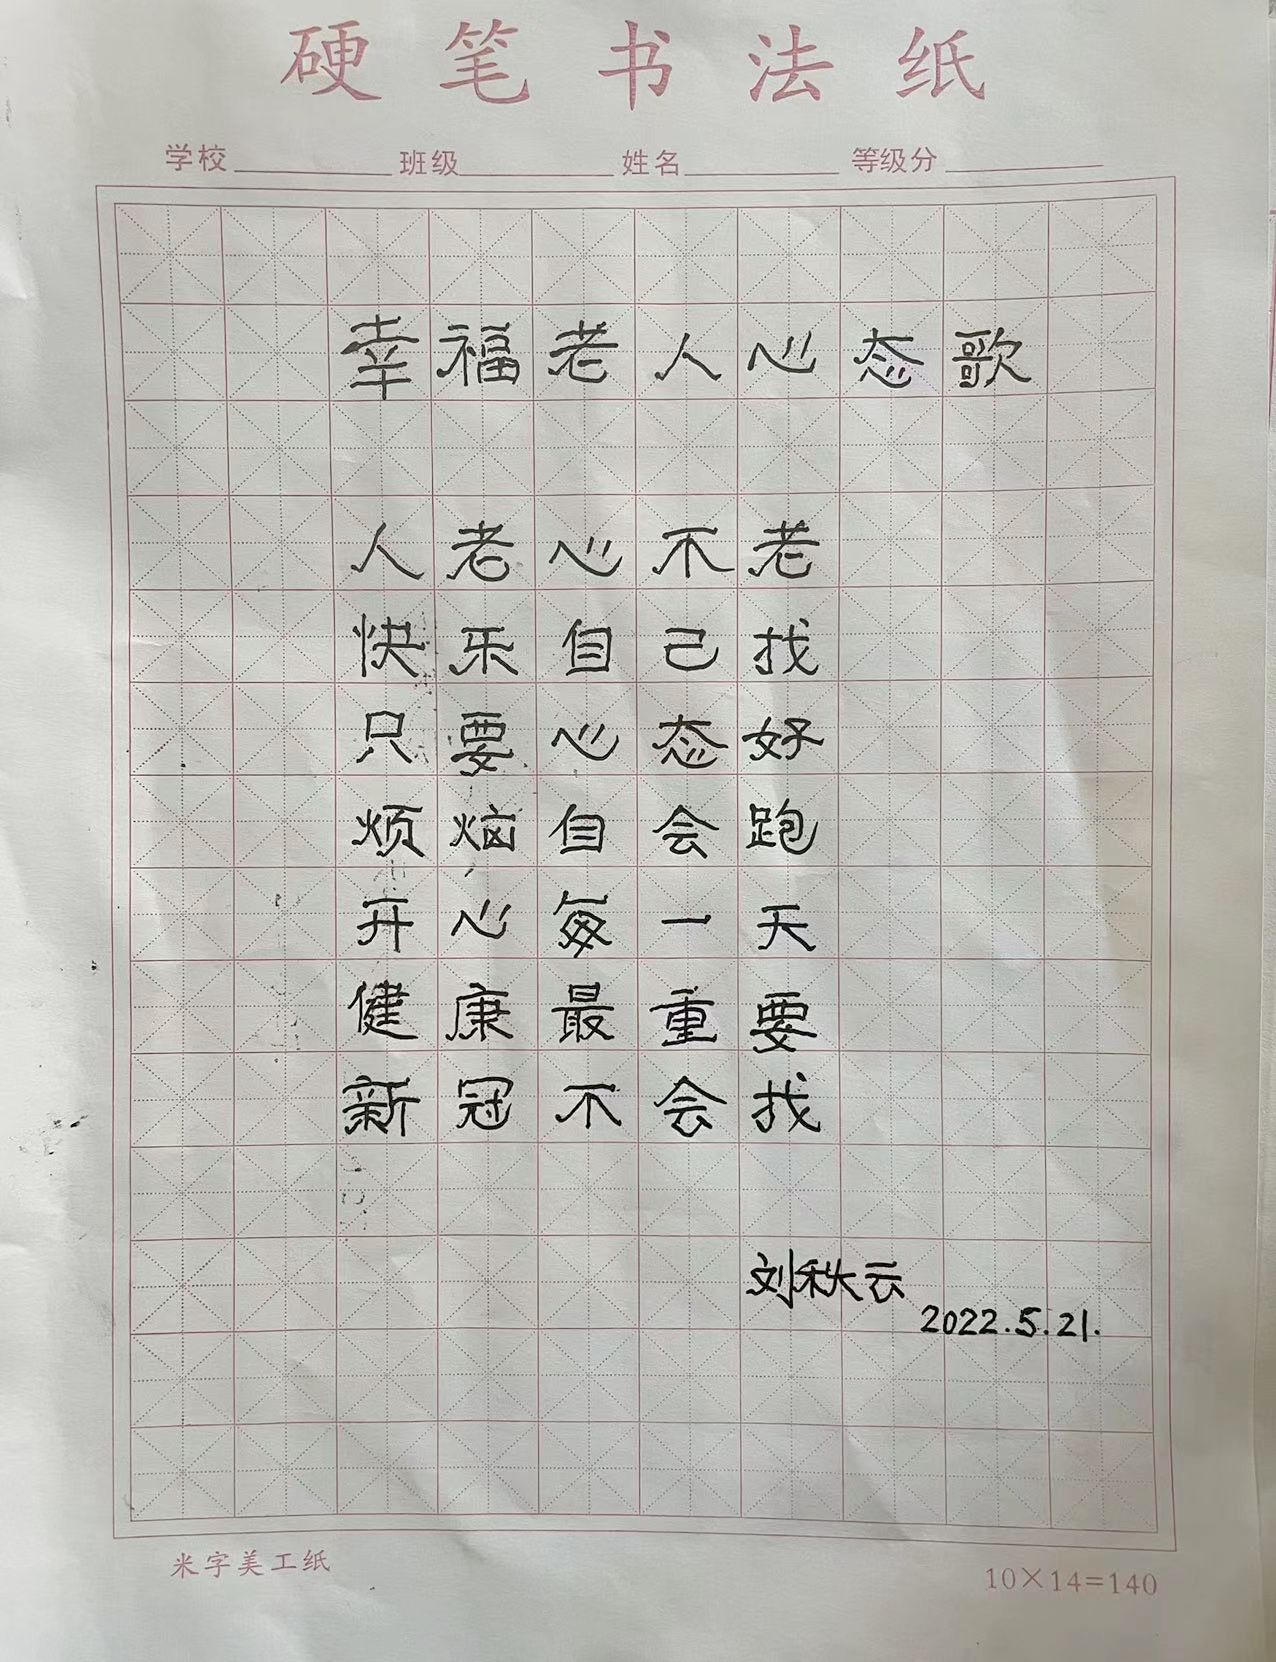 硬笔书法纸
学校 班级 姓名 等级分
幸福老人心态歌
人老心不老
快乐自己找
只要心态好
烦恼自会跑
开心每一天
健康最重要
新冠不会找
刘秋云
2022.5.21.
米字美工纸
10×14=140